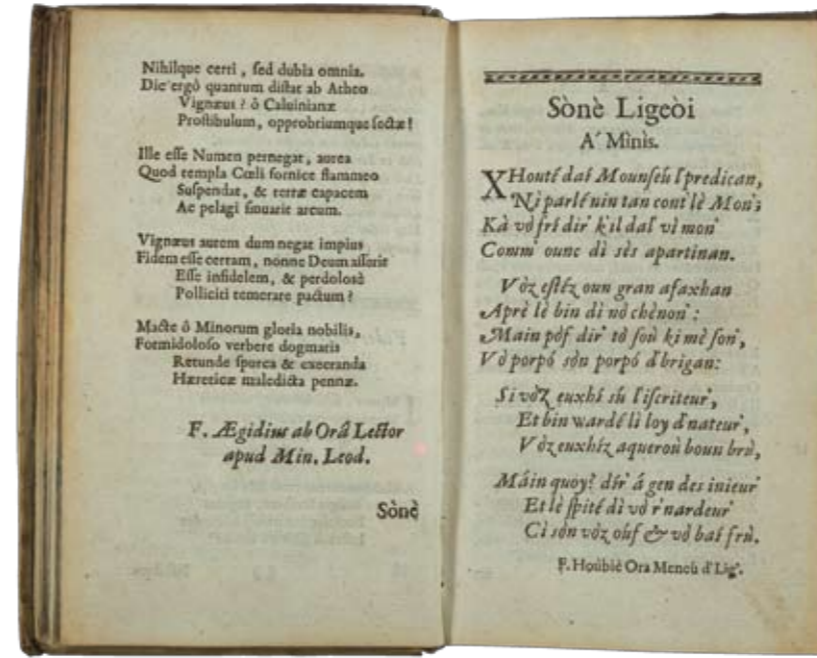 Nihilque certi, sed dubia omnia.
Dic ergò quantum distat ab Atheo
Vignæus? ô Caluinianæ
Prostibulum, opprobriumque sectæ!
Ille esse Numen pernegat, aurea
Quod templa Cœli fornice flammeo
Suspendat, & terræ capacem
Ac pelagi sinuarit arcum.
Vignæus autem dum negat impius
Fidem esse certam, nonne Deum asserit
Esse infidelem, & perdolosè
Polliciti temerare pactum?
Macte ô Minorum gloria nobilis,
Formidoloso verbere dogmatis
Retunde spurca & execranda
Hæreticæ maledicta pennæ.
F. Ægidius ab Orâ Lector
apud Min. Leod.
Sònè
Sònè Ligeòi
A' Mìnìs.
XHouté daí Mounseú l'predican,
Ni parlé nin tan cont' lè Mon';
Kà vò frí dir' k'il daí vì mon'
Comm' ounc dì sès apartinan.
Vòz estéz oun gran afaxhan
Aprè lè bin dì nò chènon':
Main pôf dir' tò soù ki mè son',
Vò porpó sòn porpó d'brigan:
Si vòz euxhí sù l'iscriteur',
Et bin wardé lì loy d'nateur',
Vòz euxhíz aqueroù boun brù,
Máin quoy? dír' á gen des inieur'
Et lè spité dì vò r'nardeur'
Cì sòn vòz oúf & vò baí frù.
F. Hoùbiè Ora Meneù d'Lig'.